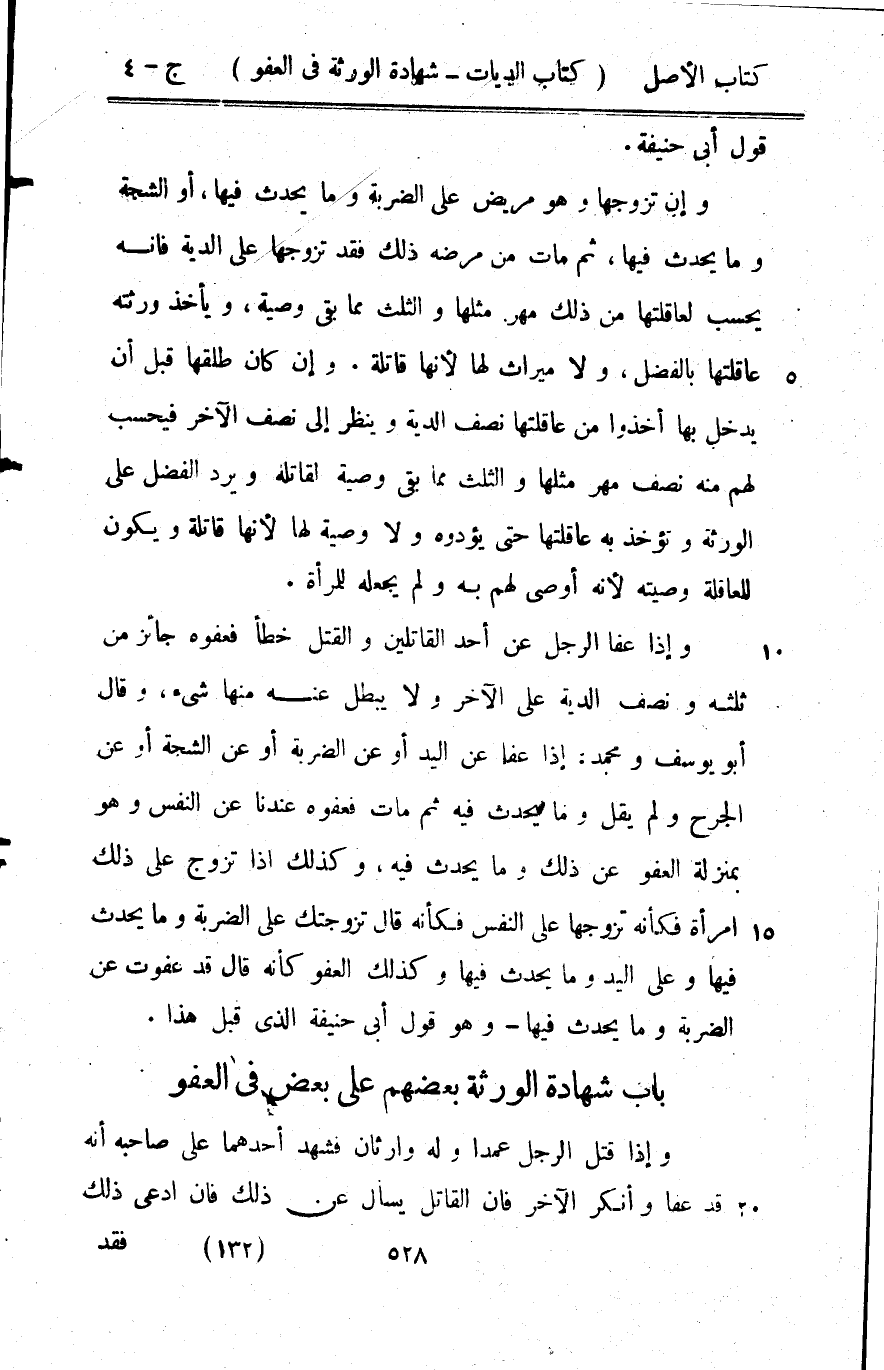 كتاب الأصل ( كتاب الديات ــ شهادة الورثة فى العفو ) ج – ٤
قول أبى حنيفة .
و إن تزوجها و هو مريض على الضربة و ما يحدث فيها، أو الشجة
و ما يحدث فيها، ثم مات من مرضه ذلك فقد تزوجها على الدية فانـــه
يحسب لعاقلتها من ذلك مهر مثلها و الثلث مما بقى وصية، و يأخذ ورثته
٥ عاقلتها بالفضل، و لا ميراث لها لأنها قاتلة . و إن كان طلقها قبل أن
يدخل بها أخذوا من عاقلتها نصف الدية و ينظر إلى نصف الآخر فيحسب
لهم منه نصف مهر مثلها و الثلث مما بقى وصية لقاتله و يرد الفضل على
الورثة و تؤخذ به عاقلتها حتى يؤدوه و لا وصية لها لأنها قاتلة و يكون
للعاقلة وصيته لأنه أوصى لهم بـه و لم يجعله للمرأة .
١٠ و إذا عفا الرجل عن أحد القاتلين و القتل خطأ فعفوه جائز من
ثلثـه و نصف الدية على الآخر و لا يبطل عنـــه منها شىء، و قال
أبو يوسف و محمد: إذا عفا عن اليد أو عن الضربة أو عن الشجة أو عن
الجرح و لم يقل و ما يحدث فيه ثم مات فعفوه عندنا عن النفس و هو
بمنزلة العفو عن ذلك و ما يحدث فيه، و كذلك اذا تزوج على ذلك
١٥ امرأة فكأنه تزوجها على النفس فكأنه قال تزوجتك على الضربة و ما يحدث
فيها و على اليد و ما يحدث فيها و كذلك العفو كأنه قال قد عفوت عن
الضربة و ما يحدث فيها – و هو قول أبى حنيفة الذى قبل هذا .
باب شهادة الورثة بعضهم على بعض فى العفو
و إذا قتل الرجل عمدا و له وارثان فشهد أحدهما على صاحبه أنه
٢٠ قد عفا و أنكر الآخر فان القاتل يسأل عن ذلك فان ادعى ذلك
٥٢٨ (١٣٢) فقد